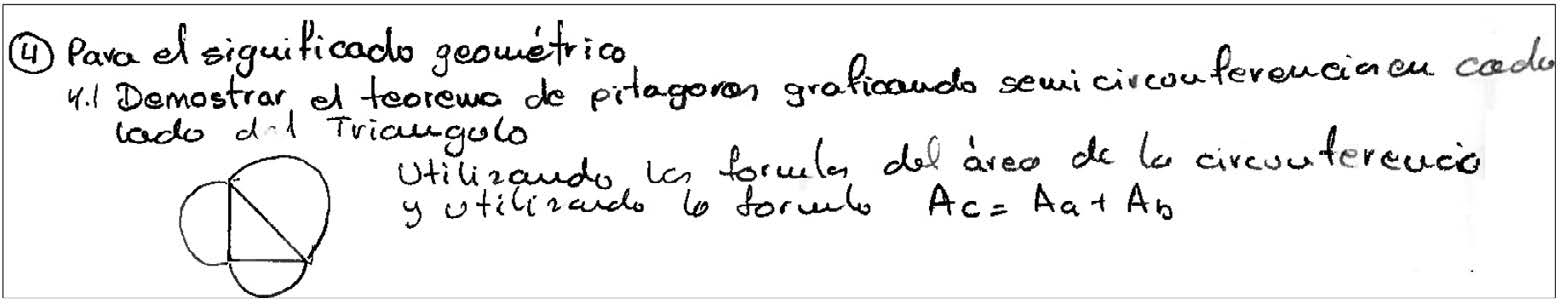 ④ Para el significado geométrico
4.1 Demostrar el teorema de pitagoras graficando semicircunferencias en cada
lado del Triangulo
Utilizando las formulas del área de la circunferencia
y utilizando la formula Ac = Aa + Ab